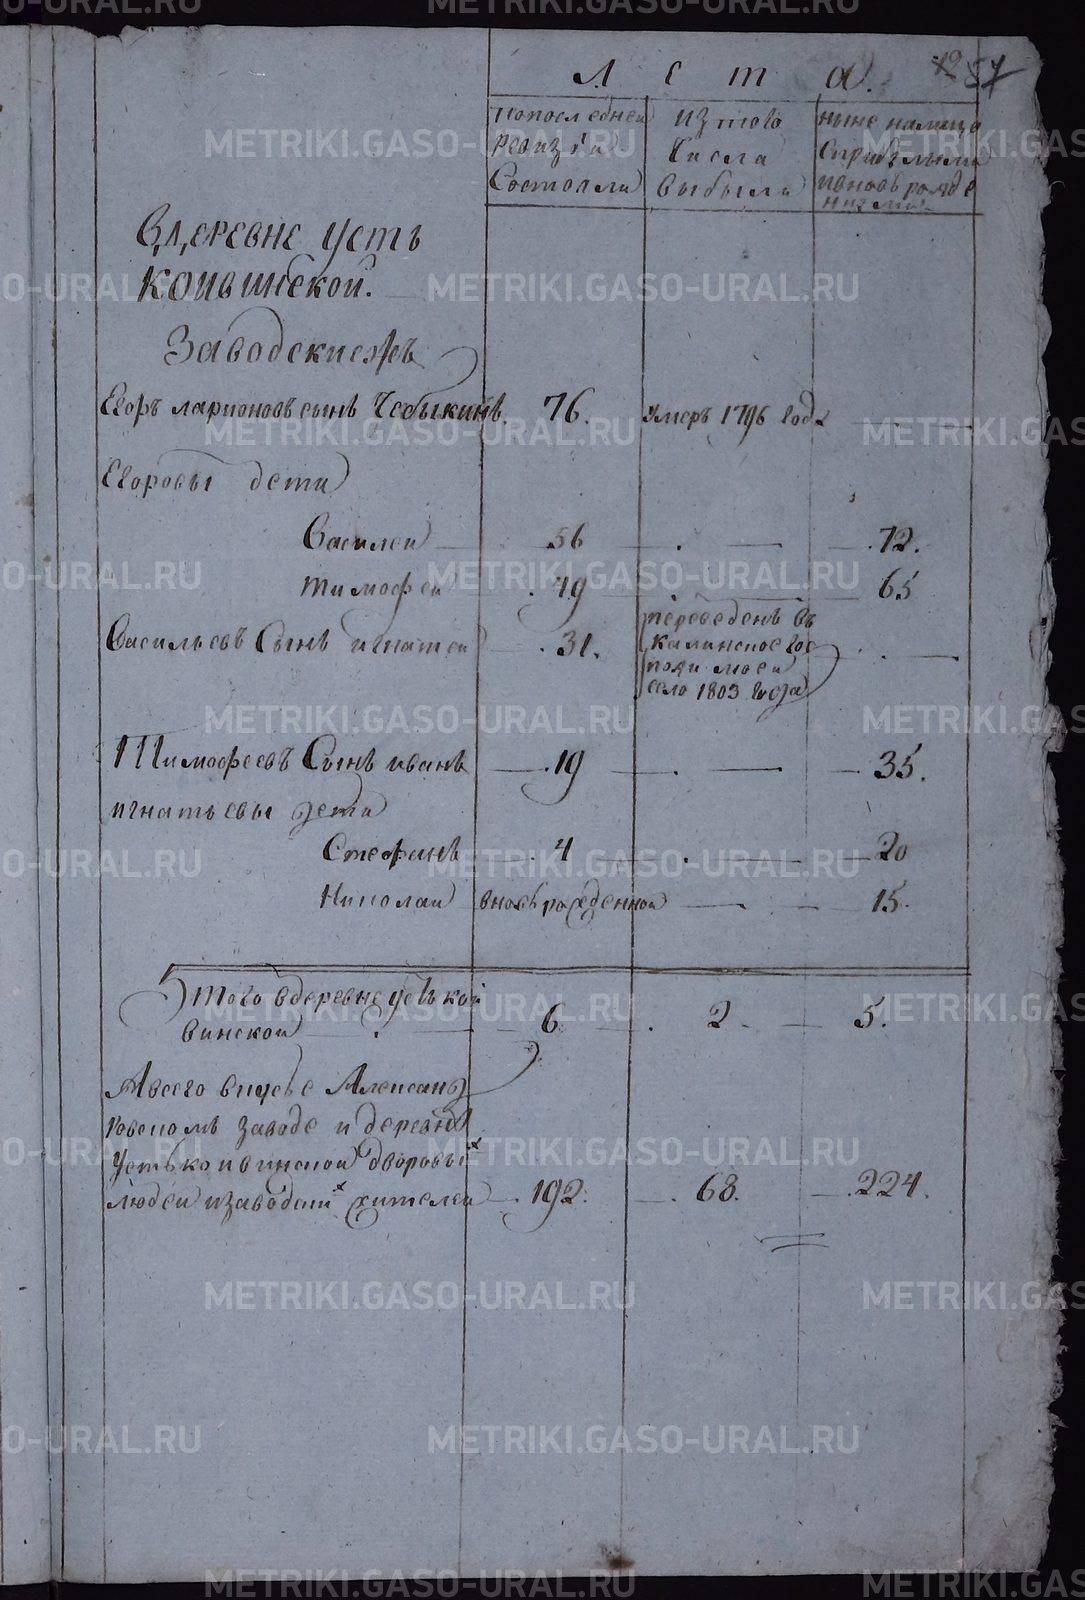 Лета.
19 57
попоследней
ревизiи
Состояли
изтого
Числа
Выбыли
ныне налицо
Сприбылыми
ивновь рожде
ными
Вдеревне усть
Койвинской.
Заводскиежъ
Егоръ ларионовъ сынъ Чебыкинъ. 76. умеръ 1796 года
Егоровы дети
Василеи 56 72.
тимофеи 49 65
Васильевъ Сынъ игнатеи 31.
переведенъ въ
Калинское гос
село 1803 года
Тимофеевъ Сынъ иванъ 19 35.
игнатьевы дети
Стефанъ 4 20
Николаи вновьрожденнои 15.
Итого вдеревне устькои
винскои 6 2. 5.
Авсего впусье Александ
ровскомъ заводе и деревне
Устькоивинскои дворовыхъ
людеи изаводскихъ жителеи 192. 68. 224.
METRIKI.GASO-URAL.RU